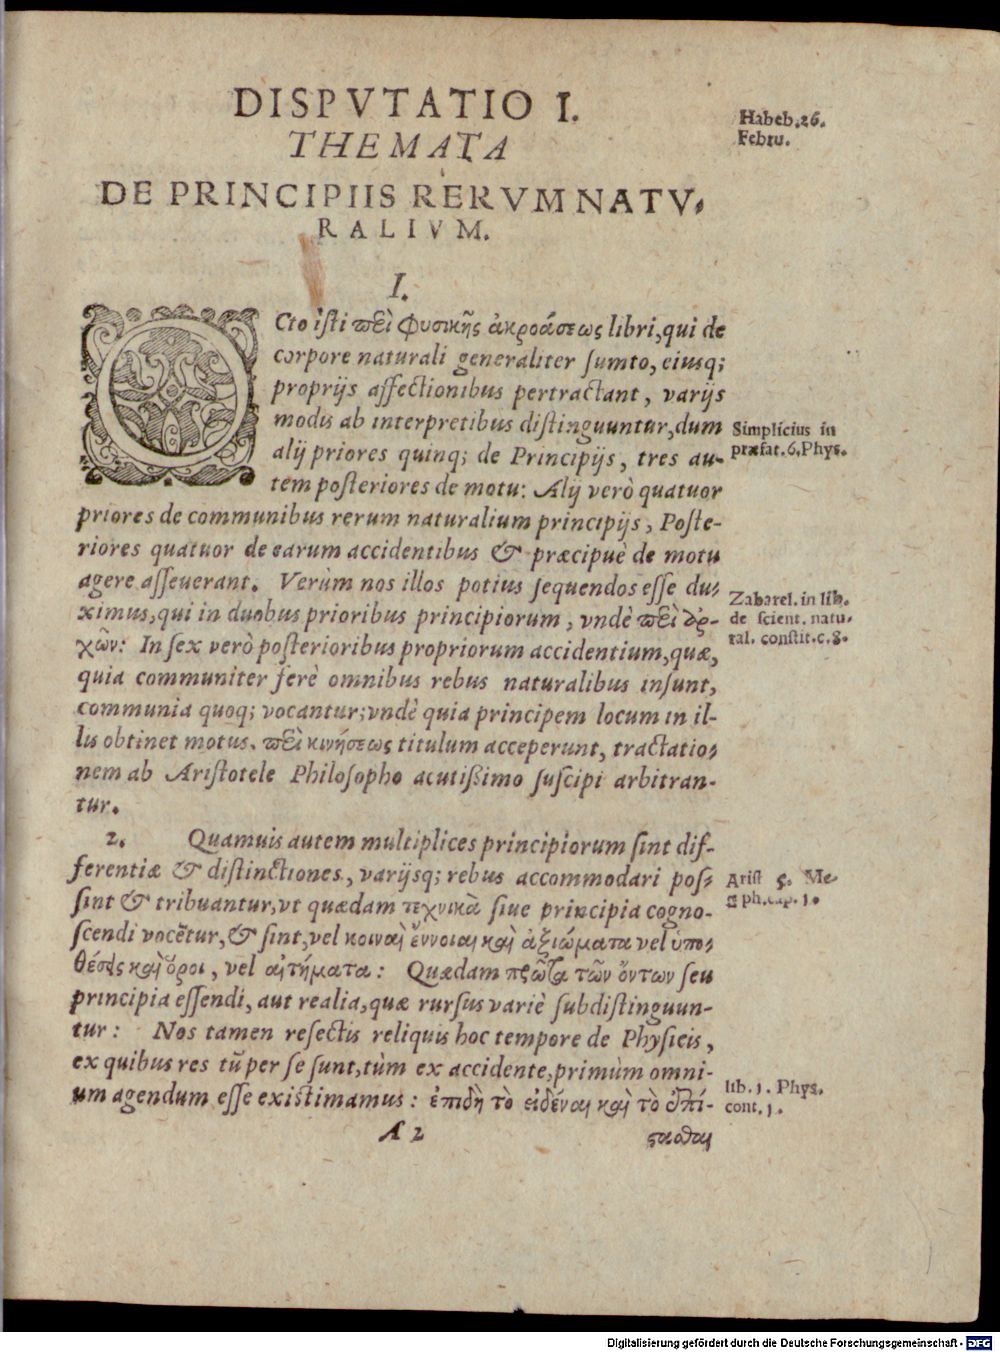 DISPVTATIO I.
Habeb. 26.
Febru.
THEMATA
DE PRINCIPIIS RERVM NATV-
RALIVM.
I.
OCto isti πεὶ φυσικῆς ἀκροάσεως libri, qui de
corpore naturali generaliter sumto, eiusq;
proprijs affectionibus pertractant, varijs
modis ab interpretibus distinguuntur, dum
alij priores quinq; de Principijs, tres au-
tem posteriores de motu: Alij verò quatuor
Simplicius in
præfat. 6. Phys.
priores de communibus rerum naturalium principijs, Poste-
riores quatuor de earum accidentibus & præcipuè de motu
agere asseuerant. Verùm nos illos potius sequendos esse du-
ximus, qui in duobus prioribus principiorum, vndè πεὶ ἀρ-
χῶν: In sex verò posterioribus propriorum accidentium, quæ,
Zabarel. in lib.
de scient. natu-
ral. constit. c. 8.
quia communiter ferè omnibus rebus naturalibus insunt,
communia quoq; vocantur; vndè quia principem locum in il-
lis obtinet motus. πεὶ κινήσεως titulum acceperunt, tractatio-
nem ab Aristotele Philosopho acutißimo suscipi arbitran-
tur.
2. Quamuis autem multiplices principiorum sint dif-
ferentiæ & distinctiones, varijsq; rebus accommodari pos-
sint & tribuantur, vt quædam τεχνικὰ siue principia cogno-
Arist 5. Me-
ph. cap. 1.
scendi vocētur, & sint, vel κοιναὶ ἔννοιαι καὶ ἀξιώματα vel ὑπο-
θέσεις καὶ ὅροι, vel αἰτήματα: Quædam πρῶτα τῶν ὄντων seu
principia essendi, aut realia, quæ rursus variè subdistinguun-
tur: Nos tamen resectis reliquis hoc tempore de Physicis,
ex quibus res tū per se sunt, tùm ex accidente, primùm omni-
um agendum esse existimamus: ἐπιδὴ τὸ εἰδέναι καὶ τὸ ἐπί-
lib. 1. Phys.
cont. 1.
A 2
ςαςθαι
Digitalisierung gefördert durch die Deutsche Forschungsgemeinschaft - DFG